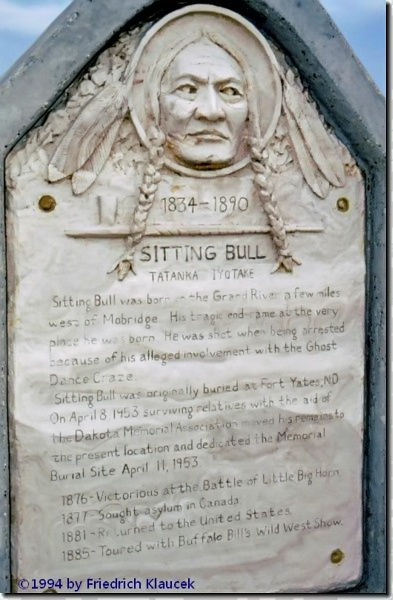 1834-1890
SITTING BULL
TATANKA IYOTAKE
Sitting Bull was born on the Grand River a few miles
west of Mobridge. His tragic end came at the very
place he was born. He was shot when being arrested
because of his alleged involvement with the Ghost
Dance Craze.
Sitting Bull was originally buried at Fort Yates, ND
On April 8 1953 surviving relatives with the aid of
the Dakota Memorial Association moved his remains to
the present location and dedicated the Memorial
Burial Site April 11, 1953
1876-Victorious at the Battle of Little Big Horn.
1877-Sought asylum in Canada
1881-Returned to the United States
1885-Toured with Buffalo Bill's Wild West Show.
©1994 by Friedrich Klaucek